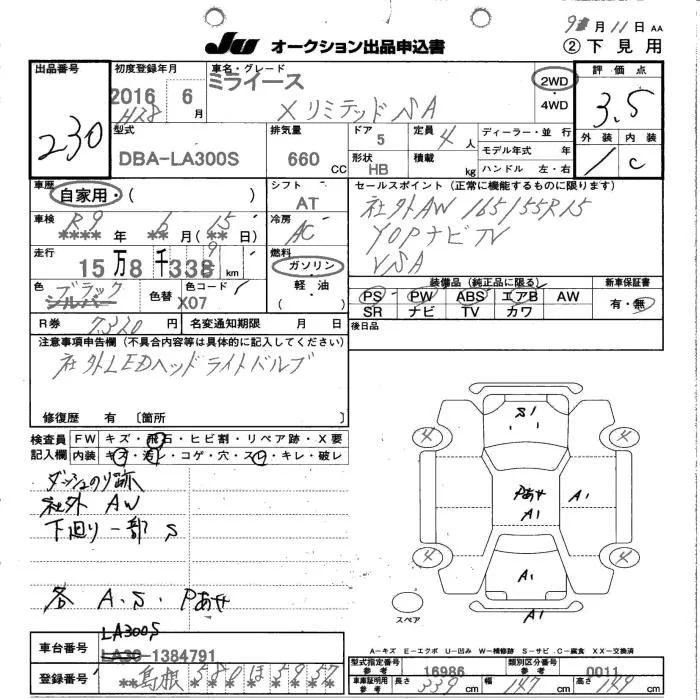 9月11日 AA
JU オークション出品申込書
② 下見用
出品番号
230
初度登録年月
2016 6月
H28
車名・グレード
ミライース
X リミテッド SA
2WD
・
4WD
評価点
3.5
外装 内装
/ C
型式
DBA-LA300S
排気量
660 CC
ドア
5
形状
HB
定員
4 人
積載
kg
ディーラー・並行
モデル年式 年
ハンドル 左・右
車歴
自家用・( )
シフト
AT
車検
R9 6 15
**** 年 ** 月(** 日)
冷房
AC
走行
15万8千338 km
9
燃料
ガソリン・
軽油・
( )
色
ブラック
シルバー
色替
色コード
X07
R券 7320 円
名変通知期限 月 日
セールスポイント (正常に機能するものに限ります)
社外AW 165/55R15
ナビTV
VSA
装備品(純正品に限る)
新車保証書
PS PW ABS エアB AW
SR ナビ TV カワ
有・無
後日品
注意事項申告欄(不具合内容等は具体的に記入してください)
社外LEDヘッドライトバルブ
修復歴 有〔箇所 〕
検査員
記入欄
FW キズ・飛石・ヒビ割・リペア跡・X要
内装 キズ・汚レ・コゲ・穴・スレ・キレ・破レ
ダッシュのり跡
社外 AW
下廻り一部 S
各 A.S.Pあせ
S1
4 4
Pあせ
A1
A1
4 4
A1
A1
スペア
A-キズ E-エクボ U-凹み W-補修跡 S-サビ C-腐食 XX-交換済
車台番号
LA300S
LA30-1384791
登録番号
**島根 580 ほ 5957
型式指定番号
参考
16986
類別区分番号
参考
0011
車庫証明用
参考
長さ 339 cm
幅 147 cm
高さ 149 cm